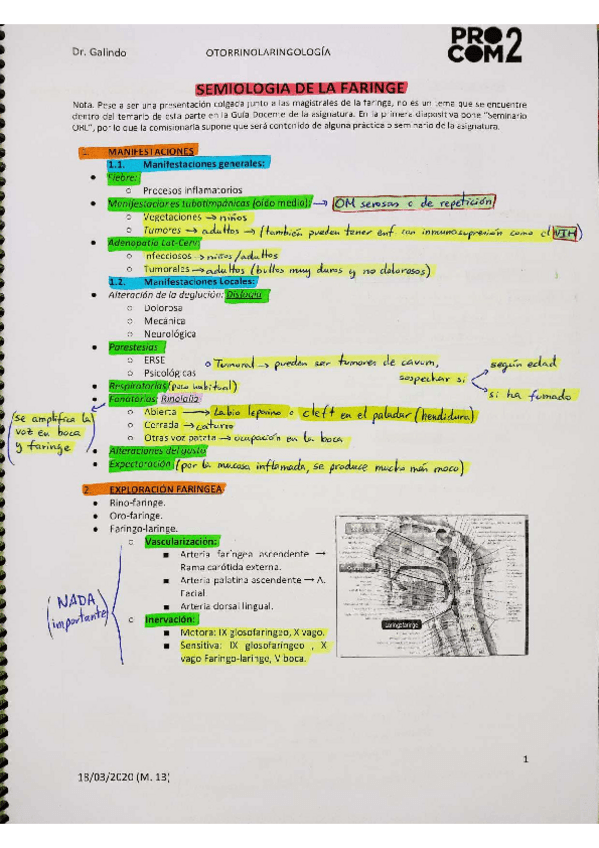 Dr. Galindo OTORRINOLARINGOLOGÍA PRO COM2
SEMIOLOGIA DE LA FARINGE
Nota. Pese a ser una presentación colgada junto a las magistrales de la faringe, no es un tema que se encuentre
dentro del temario de esta parte en la Guía Docente de la asignatura. En la primera diapositiva pone "Seminario
ORL", por lo que la comisionaria supone que será contenido de alguna práctica o seminario de la asignatura.
1. MANIFESTACIONES
1.1. Manifestaciones generales:
• Fiebre:
o Procesos inflamatorios
• Manifestaciones tubotimpánicas (oído medio): → OM serosas o de repetición
o Vegetaciones → niños
o Tumores → adultos → (también pueden tener enf. con inmunosupresión como el VIH)
• Adenopatía Lat-Cerv:
o Infecciosos → niños/adultos
o Tumorales → adultos (bultos muy duros y no dolorosos)
1.2. Manifestaciones Locales:
• Alteración de la deglución: Disfagia
o Dolorosa
o Mecánica
o Neurológica
• Parestesias
o ERSE
o Psicológicas
o Tumoral → pueden ser tumores de cavum, sospechar si
según edad
si ha fumado
• Respiratorias (poco habitual)
• Fonatorias: Rinolalia
(se amplifica la
voz en boca
y faringe)
o Abierta → Labio leporino o cleft en el paladar (hendidura)
o Cerrada → catarro
o Otras voz patata → ocupación en la boca
• Alteraciones del gusto
• Expectoración (por la mucosa inflamada, se produce mucho más moco)
2. EXPLORACIÓN FARINGEA
• Rino-faringe.
• Oro-faringe.
• Faringo-laringe.
(NADA
importante)
o Vascularización:
▪ Arteria faríngea ascendente →
Rama carótida externa.
▪ Arteria palatina ascendente → A.
Facial
▪ Arteria dorsal lingual.
o Inervación:
▪ Motora: IX glosofaríngeo, X vago.
▪ Sensitiva: IX glosofaríngeo , X
vago Faringo-laringe, V boca.
Laringofaringe
1
18/03/2020 (M. 13)